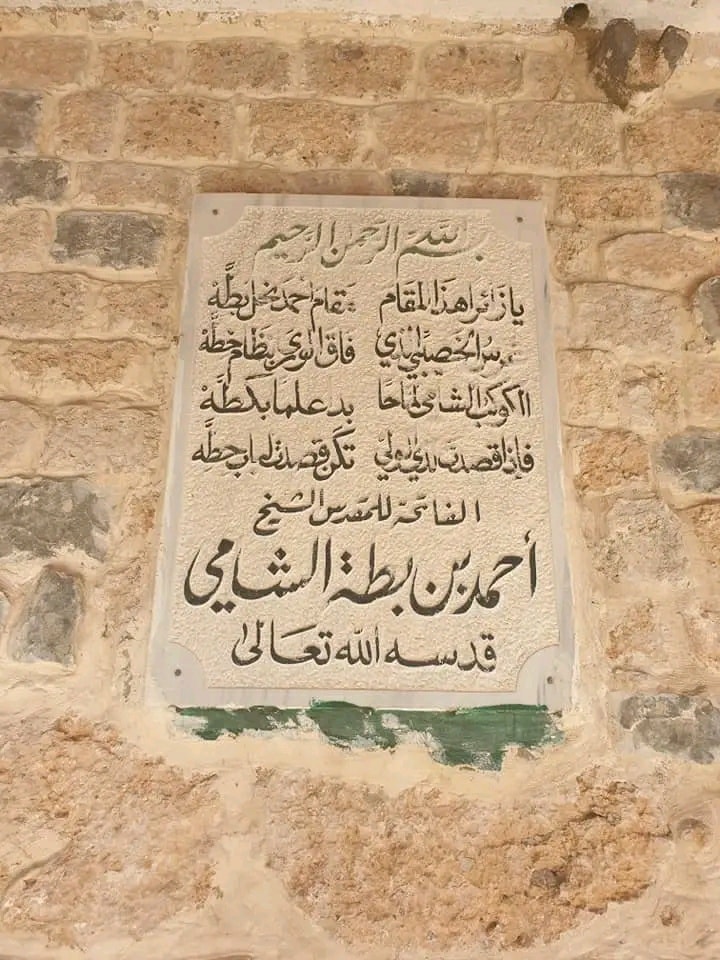 بسم الله الرحمن الرحيم
يا زائرا هذا المقام مقام أحمد نجل بطه
سر الخصيبي الذي فاق الورى بنظام خطه
الكوكب الشامي لماحا بد علما بكطه
فإذا قصدت تكن قصدت لباب حطه
الفاتحة للمقدس الشيخ
أحمد بن بطة الشامي
قدسه الله تعالى